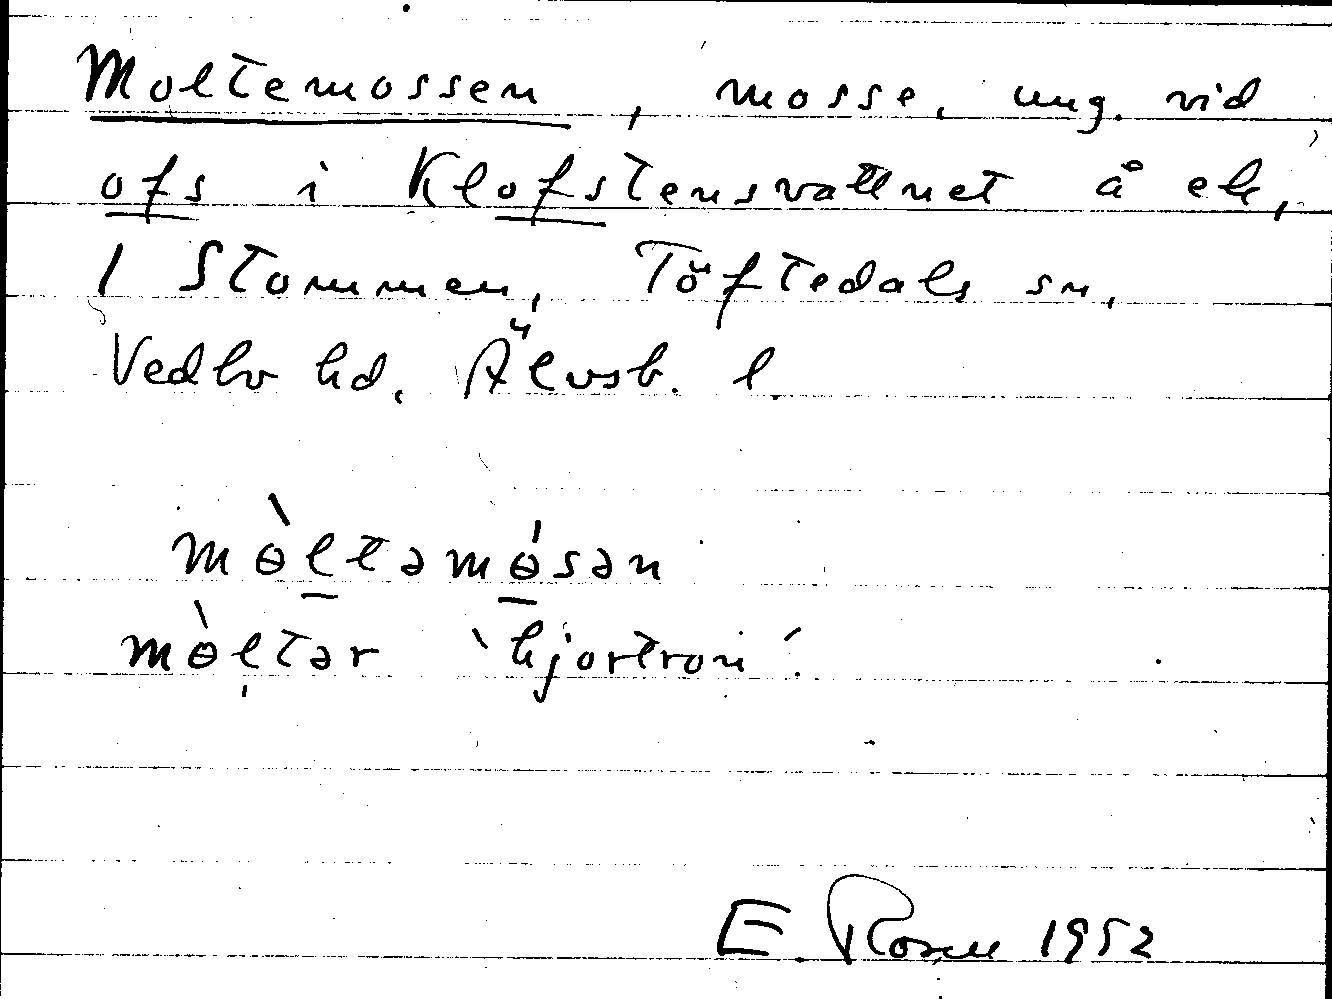 Moltemossen, mosse, ung. vid
ofs i Klofstensvattnet å ek,
1 Stommen, Töftedals sn,
Vedbo hd, Älvsb. l.
mɵ̀ltəmɵ́sən
mɵ̀ltər `hjortron´.
E. Rosell 1952